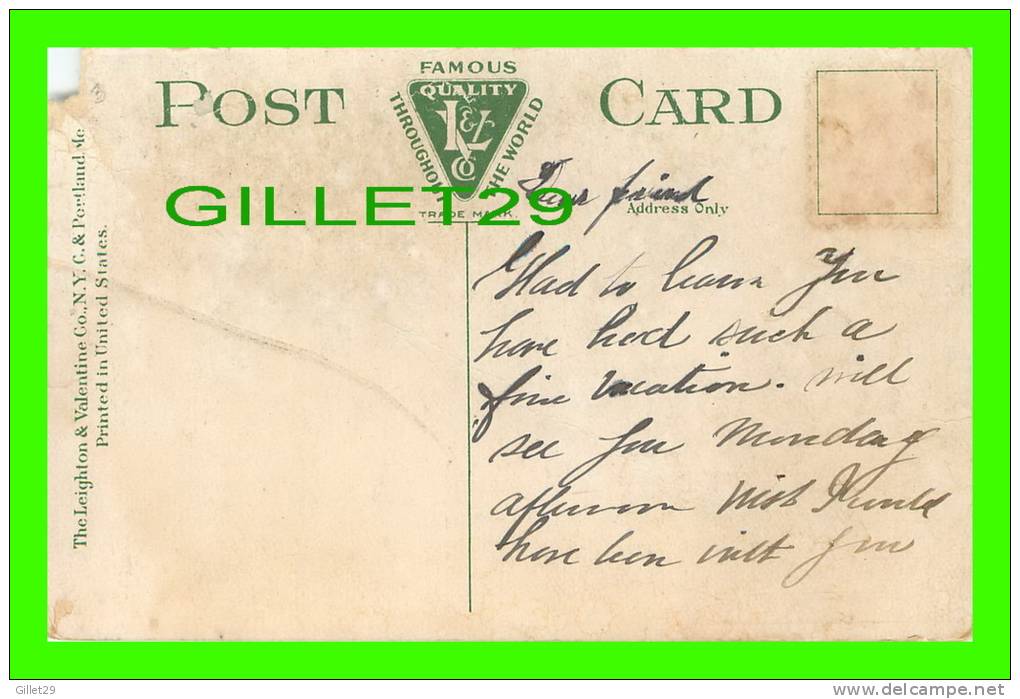 POST CARD
FAMOUS
QUALITY
L&V
CO
THROUGHOUT THE WORLD
TRADE MARK.
GILLET29
Address Only
The Leighton & Valentine Co., N.Y. C. & Portland, Me
Printed in United States.
Dear friend
Glad to learn you
have had such a
fine vacation. will
see you Monday
afternoon Wish I could
have been with you
Gillet29
www.delcampe.net